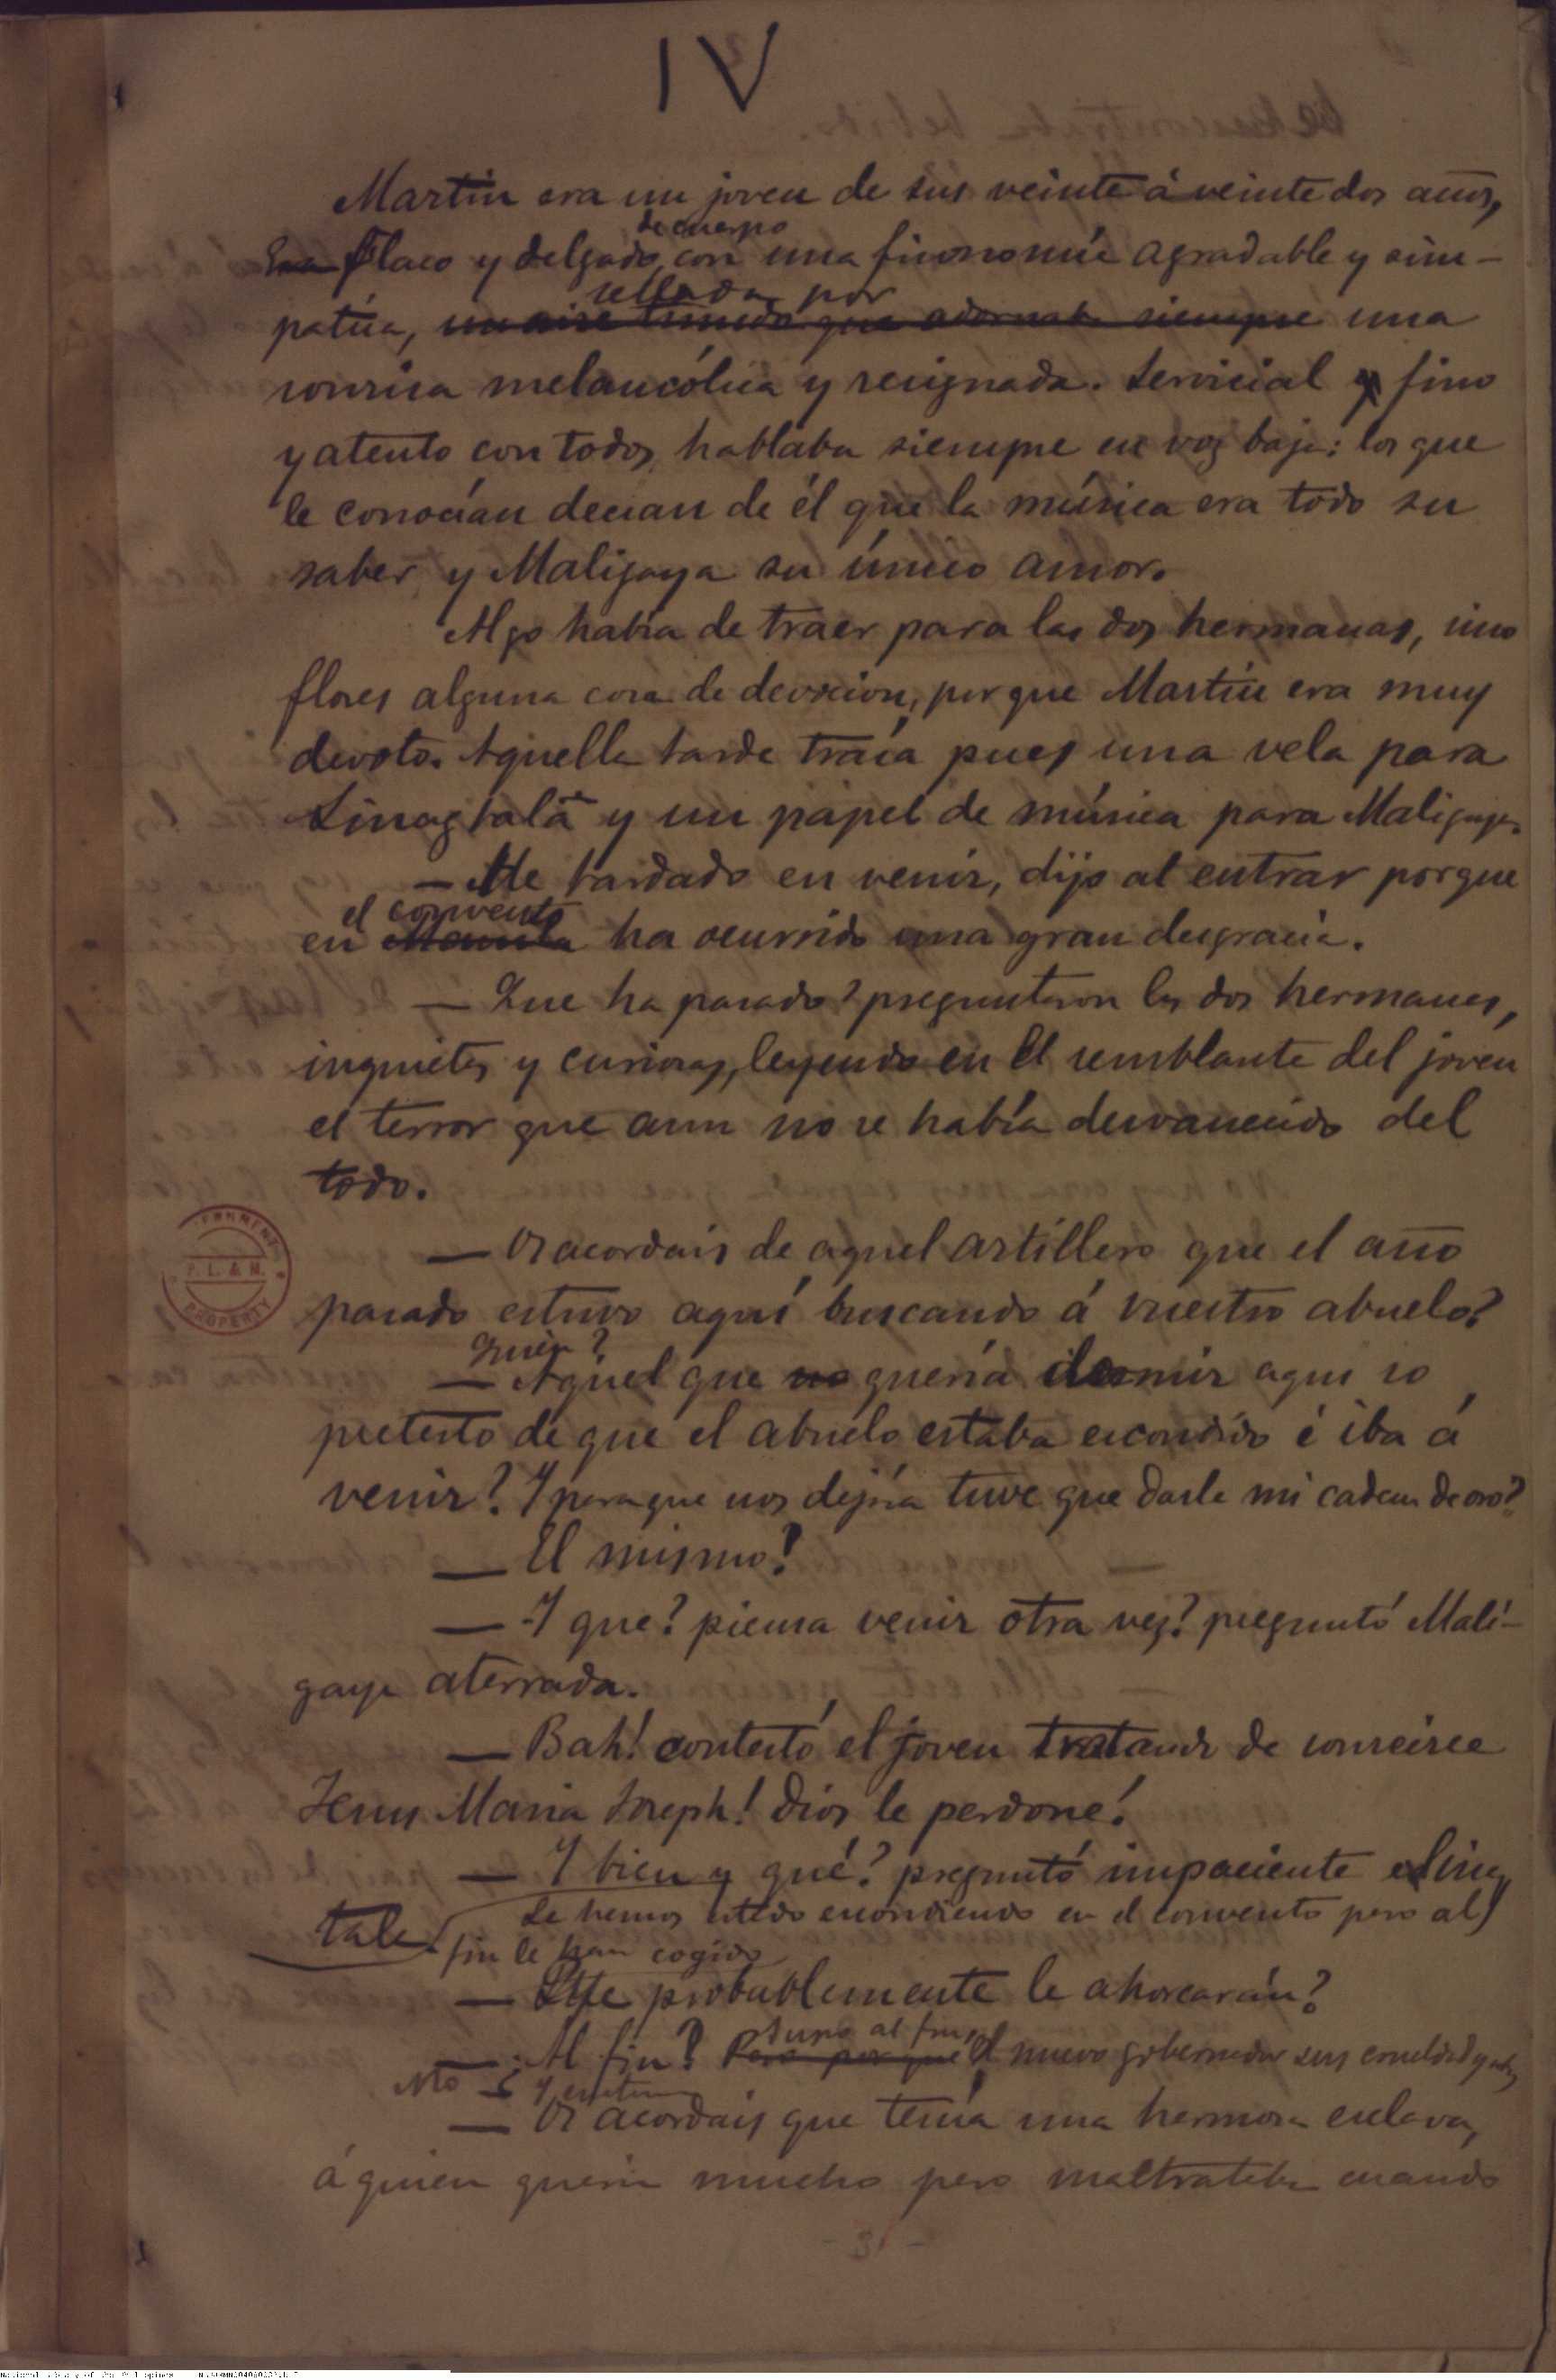 IV
Martin era un joven de sus veinte á veinte dos años,
de cuerpo
Era flaco y delgado, con una fisonomía agradable y sim-
sellada por
patica, un aire tímido que adornaba siempre una
sonrisa melancólica y resignada. Servicial y fino
y atento con todos, hablaba siempre en voz baja: los que
le conocían decian de él que la música era todo su
saber y Maligaya su único amor.
Algo habia de traer para las dos hermanas, sino
flores alguna cosa de devocion, porque Martin era muy
devoto. Aquella tarde traía pues una vela para
Sinagtalà y un papel de música para Maligaya.
— He tardado en venir, dijo al entrar porque
el convento
en Manila ha ocurrido una gran desgracia.
— Que ha pasado? preguntaron las dos hermanas,
inquietas y curiosas, leyendo en el semblante del joven
el terror que aun no se había desvanecido del
todo.
— Os acordais de aquel artillero que el año
pasado estuvo aquí buscando á vuestro abuelo?
Quien?
— Aquel que no quería dormir aqui so
pretesto de que el abuelo estaba escondido é iba á
venir? Y para que nos dejara tuve que darle mi cadena de oro?
— El mismo!
— Y que? piensa venir otra vez? preguntó Mali-
gaya aterrada.
— Bah! contestó el joven tratando de sonreirse
Jesus Maria Joseph! Dios le perdone!
— Y bien y qué? preguntó impaciente Sinag
Le hemos estado escondiendo en el convento pero al
tala.
fin le han cogido
— Que probablemente le ahorcarán?
Supo al fin,
— Al fin? Pero por que el nuevo gobernador sus crueldad
No
— Os acordais que tenía una hermosa esclava,
á quien queria mucho pero maltrataba cuando
- 31 -
PROPERTY